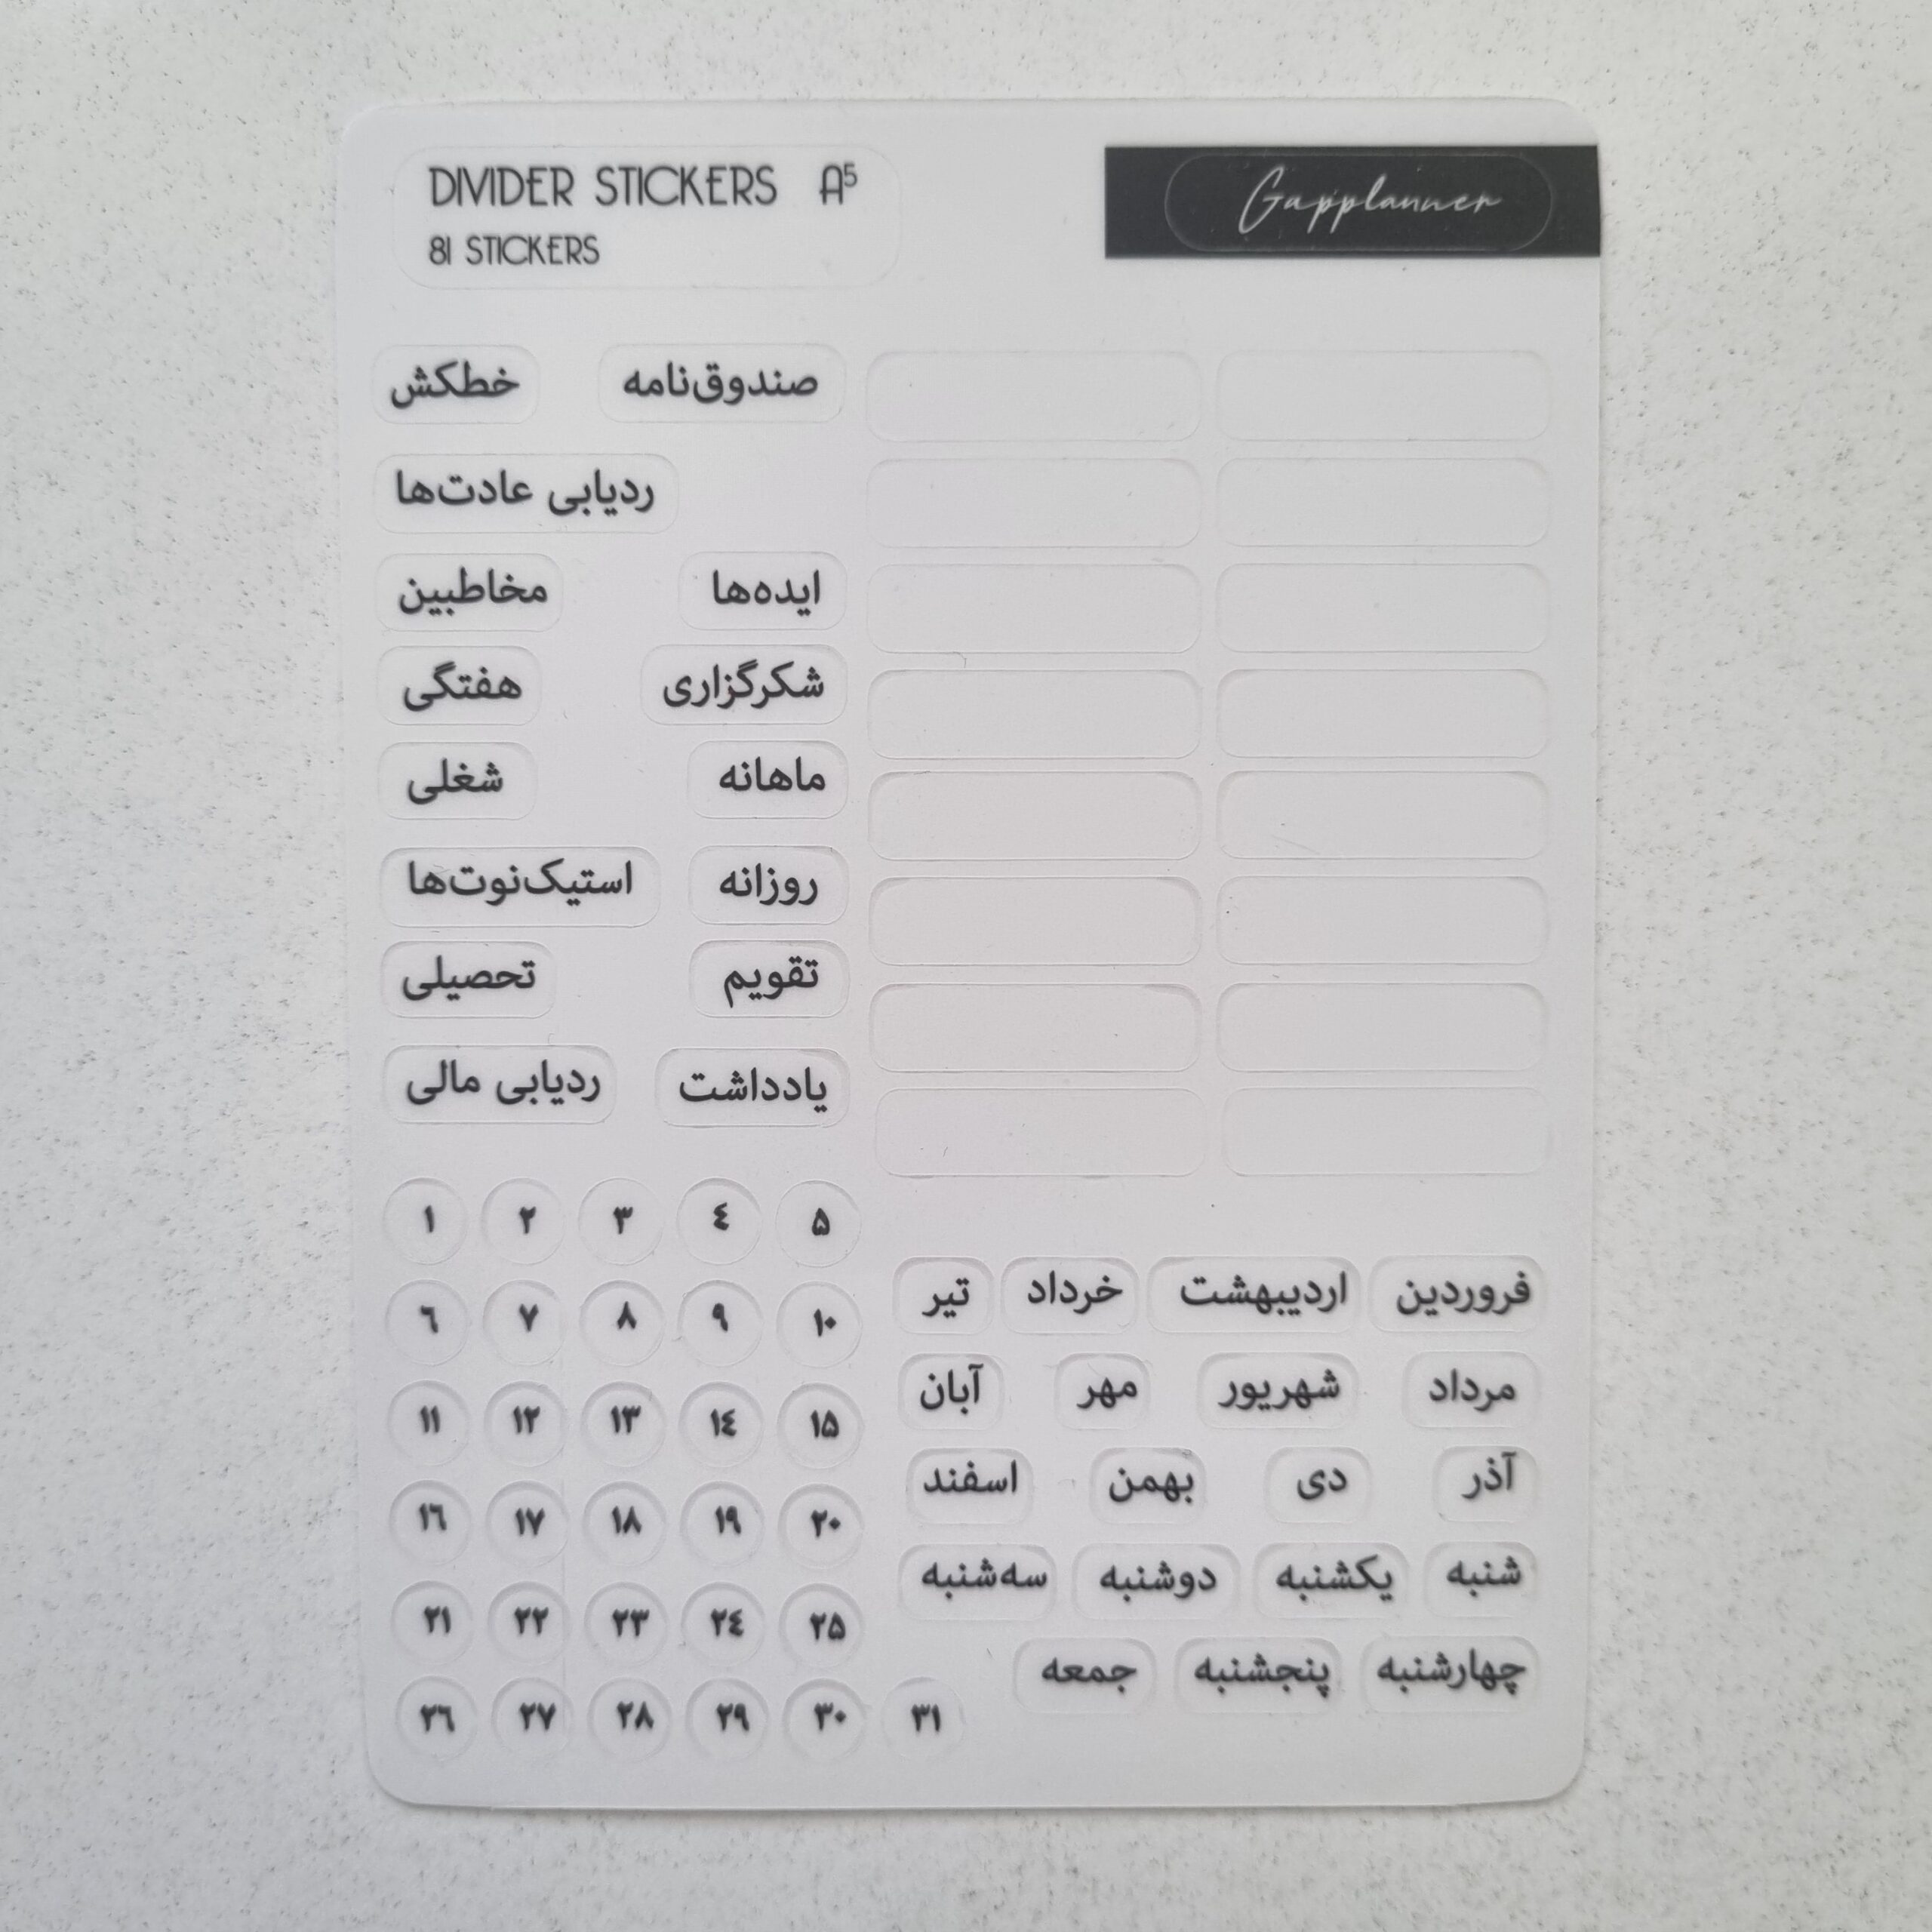 DIVIDER STICKERS A5
81 STICKERS
Gapplanner
صندوق‌نامه خطکش
ردیابی عادت‌ها
ایده‌ها مخاطبین
شکرگزاری هفتگی
ماهانه شغلی
روزانه استیک‌نوت‌ها
تقویم تحصیلی
یادداشت ردیابی مالی
۱ ۲ ۳ ٤ ۵
٦ ۷ ۸ ۹ ۱۰
۱۱ ۱۲ ۱۳ ۱٤ ۱۵
۱٦ ۱۷ ۱۸ ۱۹ ۲۰
۲۱ ۲۲ ۲۳ ۲٤ ۲۵
۲٦ ۲۷ ۲۸ ۲۹ ۳۰ ۳۱
فروردین اردیبهشت خرداد تیر
مرداد شهریور مهر آبان
آذر دی بهمن اسفند
شنبه یکشنبه دوشنبه سه‌شنبه
چهارشنبه پنجشنبه جمعه